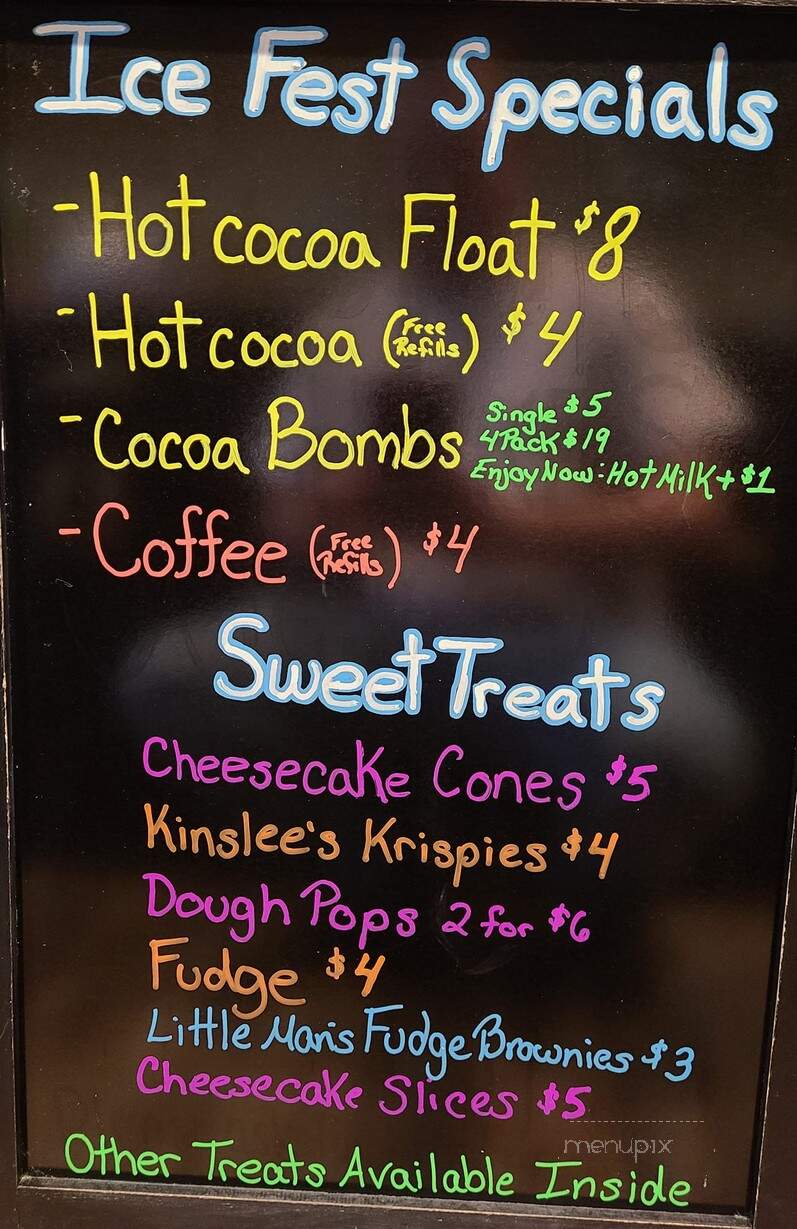 Ice Fest Specials
- Hot cocoa Float $8
- Hot cocoa (Free Refills) $4
- Cocoa Bombs
Single $5
4 Pack $19
Enjoy Now: Hot Milk + $1
- Coffee (Free Refills) $4
Sweet Treats
Cheesecake Cones $5
Kinslee's Krispies $4
Dough Pops 2 for $6
Fudge $4
Little Man's Fudge Brownies $3
Cheesecake Slices $5
menupix
Other Treats Available Inside